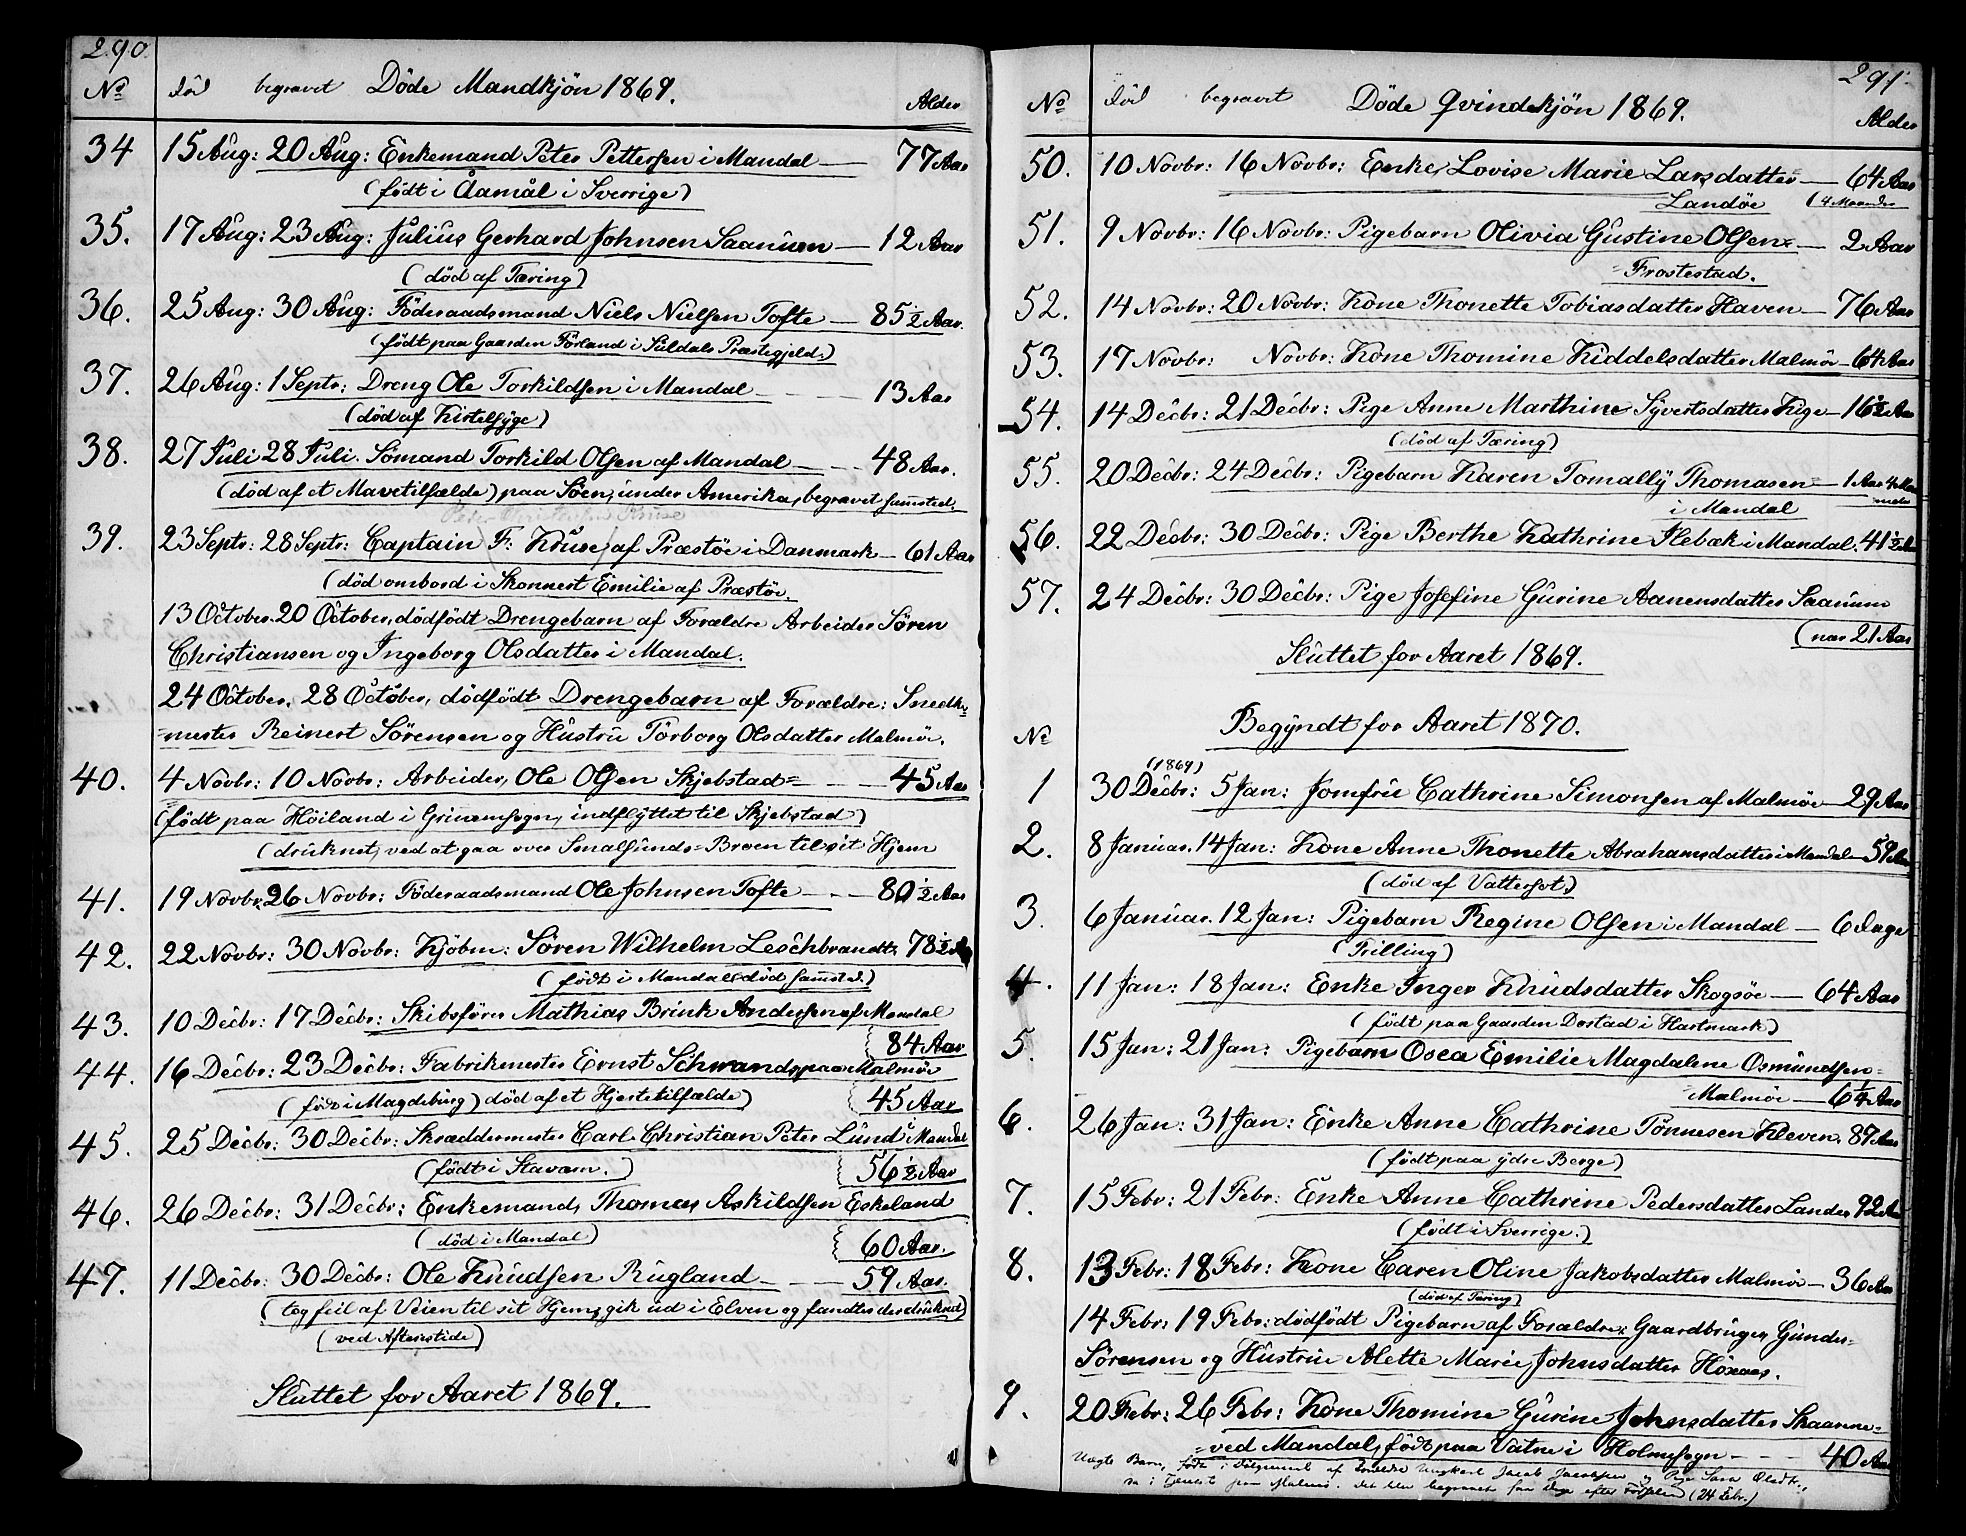 290.
No död begravet Döde Mandkjön 1869. Alder
34 15 Aug: 20 Aug: Enkemand Peter Pettersen i Mandal — 77 Aar
(födt i Åamål i Sverrige)
35. 17 Aug: 23 Aug: Julius Gerhard Johnsen Saanum — 12 Aar
(död af Tæring)
36. 25 Aug: 30 Aug: Föderaadsmand Niels Nielsen Tofte — 85 1/2 Aar.
(födt paa Gaarden Förland i Suldals Præstegjeld.)
37. 26 Aug: 1 Septr: Dreng Ole Torkildsen i Mandal — 13 Aar
(död af Kirtelsyge)
38. 27 Juli 28 Juli. Sömand Torkild Olsen af Mandal — 48 Aar.
(död af et Mavetilfælde) paa Söen, under Amerika, begravet sammsted.
39. 23 Septr: 28 Septr: Captain F. Kruse, af Præstöe i Danmark — 61 Aar
(död ombord i Skonnert Emilie af Præstöe.
13 October. 20 October, dödfödt Drengebarn af Forældre Arbeider Sören
Christiansen og Ingeborg Olsdatter i Mandal.
24 October. 28 October, dödfödt Drengebarn af Forældre: Snedker=
=mester Reinert Sörensen og Hustru Torborg Olsdatter Malmöe.
40. 4 Novbr: 10 Novbr: Arbeider, Ole Olsen Skjebstad= — 45 Aar
(födt paa Höiland i Grinemsogn, indflyttet til Skjebstad)
(druknet, ved at gaa over Smalsunds=Broen til sit Hjem
41. 19 Novbr. 26 Novbr: Föderaadsmand Ole Johnsen Tofte — 80 1/2 Aar
42. 22 Novbr: 30 Novbr: Kjöbm: Sören Wilhelm Leschbrandt, 78 1/2 Aar
(födt i Mandal död sammsted.)
43. 10 Decbr: 17 Decbr: Skibsförer Mathias Brink Andersen af Mandal
84 Aar
44. 16 Decbr: 23 Decbr: Fabrikmester Ernst Schwand, paa Malmöe
(födt i Magdeburg) död af et Hjertetilfælde) 45 Aar
45. 25 Decbr: 30 Decbr: Skræddermester Carl Christian Peter Lund i Mandal
(födt i Stavern.) 56 1/2 Aar
46. 26 Decbr: 31 Decbr: Enkemand, Thomas Askildsen Eskeland
(död i Mandal) 60 Aar.
47. 11 Decbr: 30 Decbr: Ole Knudsen Rugland — 59 Aar.
(tog feil af Veien til sit Hjem, gik ud i Elven og fandtes der druknet)
(ved Aftenstide)
Sluttet for Aaret 1869.
291.
No död begravet Döde Qvindekjön 1869. Alder
50. 10 Novbr: 16 Novbr: Enke, Lovise Marie Larsdatter — 64 Aar
Landöe (4 Maaneder
51. 9 Novbr: 16 Novbr: Pigebarn Olivia Gustine Olsen= — 2 Aar
=Frostestad.
52. 14 Novbr: 20 Novbr: Kone Thonette Tobiasdatter Haven — 76 Aar
53. 17 Novbr: Novbr: Kone Thomine Kiddelsdatter Malmöe — 64 Aar
54. 14 Decbr: 21 Decbr: Pige Anne Marthine Syvertsdatter Kige — 16 1/2 Aar
(död af Tæring)
55. 20 Decbr: 24 Decbr: Pigebarn Karen Tomally Thomasen — 1 Aar 4 Maa
i Mandal neder
56. 22 Decbr: 30 Decbr: Pige Berthe Kathrine Flebæk i Mandal. 41 1/2 Aar
57. 24 Decbr: 30 Decbr: Pige Josefine Gurine Aanensdatter Saanum
(nær 21 Aar
Sluttet for Aaret 1869.
Begyndt for Aaret 1870.
No
(1869)
1 30 Decbr: 5 Jan: Jomfru Cathrine Simonsen af Malmöe — 29 Aar
2. 8 Januar. 14 Jan: Kone Anne Thonette Abrahamsdatter i Mandal — 59 Aar
(död af Vattersot)
3. 6 Januar. 12 Jan: Pigebarn Regine Olsen i Mandal — 6 Dage
(Trilling)
4. 11 Jan: 18 Jan: Enke Inger Knudsdatter Skogsöe — 64 Aar
(födt paa Gaarden Dorstad i Hartmark)
5. 15 Jan: 21 Jan: Pigebarn Osea Emilie Magdalene Osmundsen=
=Malmöe — 6 1/4 Aar
6. 26 Jan: 31 Jan: Enke Anne Cathrine Tönnesen Kleven. 87 Aar
(födt paa ydre Berge)
7. 15 Febr: 21 Febr: Enke Anne Cathrine Pedersdatter Lande, 92 Aar
(födt i Sverrige.)
8. 13 Febr: 18 Febr: Kone Caren Oline Jakobsdatter Malmöe — 36 Aar
(död af Tæring)
14 Febr: 19 Febr: dödfödt Pigebarn af Forældre: Gaardbruger Gunder=
Sörensen og Hustrue Alette Marie Johnsdatter Höxaas.
9. 20 Febr: 26 Febr: Kone Thomine Gurine Johnsdatter Skaarene=
=ved Mandal, födt paa Vatne i Holmesogn — 40 Aar
Uægte Barn, födt i af Forældre Ungkarl Jacob Jacobsen og Pige Sara Olsdtr.,
i Tjeneste paa Malmö. det blev begravet efter Födselen (24 Febr.)